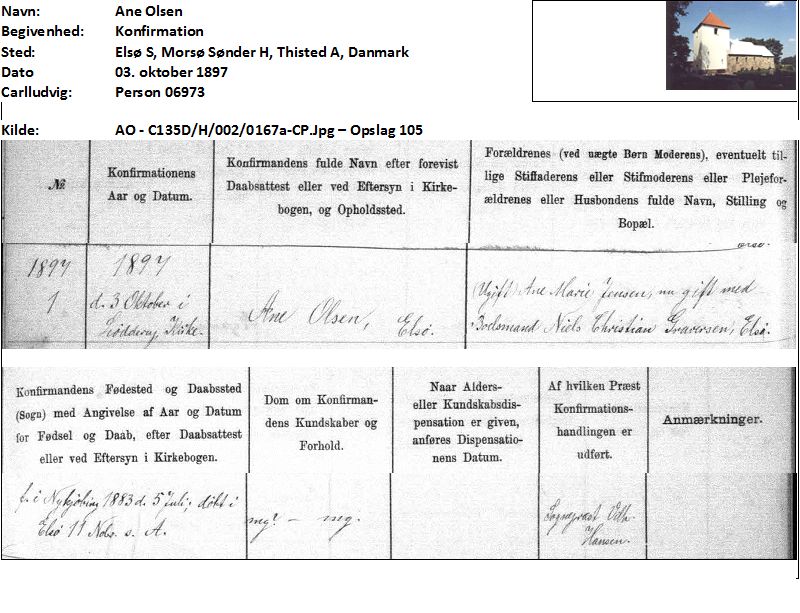 Navn: Ane Olsen
Begivenhed: Konfirmation
Sted: Elsø S, Morsø Sønder H, Thisted A, Danmark
Dato 03. oktober 1897
Carlludvig: Person 06973
Kilde: AO - C135D/H/002/0167a-CP.Jpg – Opslag 105
№
Konfirmationens
Aar og Datum.
Konfirmandens fulde Navn efter forevist
Daabsattest eller ved Eftersyn i Kirke-
bogen, og Opholdssted.
Forældrenes (ved uægte Børn Moderens), eventuelt til-
lige Stiffaderens eller Stifmoderens eller Plejefor-
ældrenes eller Husbondens fulde Navn, Stilling og
Bopæl.
1897
1
1897
d. 3 Oktober i
Kirke.
Ane Olsen, Elsø.
(Ugift) Ane Marie Jensen, nu gift med
Boelsmand Niels Christian Graversen, Elsø.
Konfirmandens Fødested og Daabssted
(Sogn) med Angivelse af Aar og Datum
for Fødsel og Daab, efter Daabsattest
eller ved Eftersyn i Kirkebogen.
Dom om Konfirman-
dens Kundskaber og
Forhold.
Naar Alders-
eller Kundskabsdis-
pensation er given,
anføres Dispensatio-
nens Datum.
Af hvilken Præst
Konfirmations-
handlingen er
udført.
Anmærkninger.
f. i Nykjøbing 1883 d. 5 Juli; døbt i
Elsø 11 Nobr. s. A.
mg? – mg.
Sognepræst
Hansen.